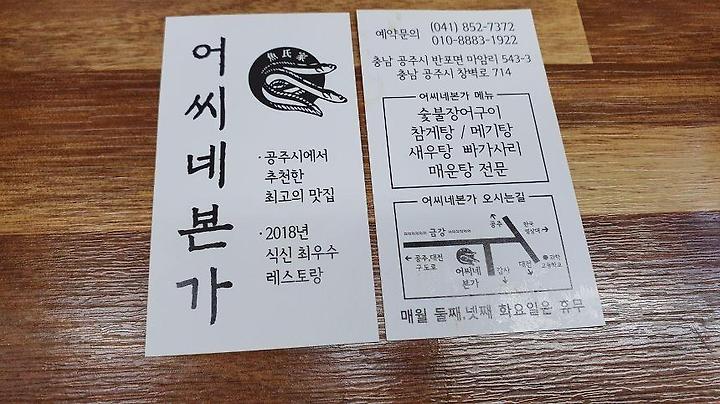 어씨네본가
魚氏家
· 공주시에서
추천한
최고의 맛집
· 2018년
식신 최우수
레스토랑
예약문의 (041) 852-7372
010-8883-1922
충남 공주시 반포면 마암리 543-3
충남 공주시 창벽로 714
어씨네본가 메뉴
숯불장어구이
참게탕 / 메기탕
새우탕 빠가사리
매운탕 전문
어씨네본가 오시는길
금강
공주
한국
영상대
공주,대전
구 도로
어씨네
본가
감사
대전
과학
고등학교
매월 둘째,넷째 화요일은 휴무